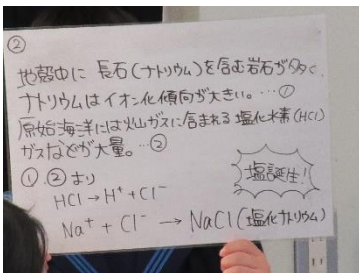 ②
地殻中に長石(ナトリウム)を含む岩石が多く、
ナトリウムはイオン化傾向が大きい。…①
原始海洋には火山ガスに含まれる塩化水素(HCl)
ガスなどが大量。…②
①、②より
HCl → H⁺ + Cl⁻
塩誕生!
Na⁺ + Cl⁻ → NaCl(塩化ナトリウム)